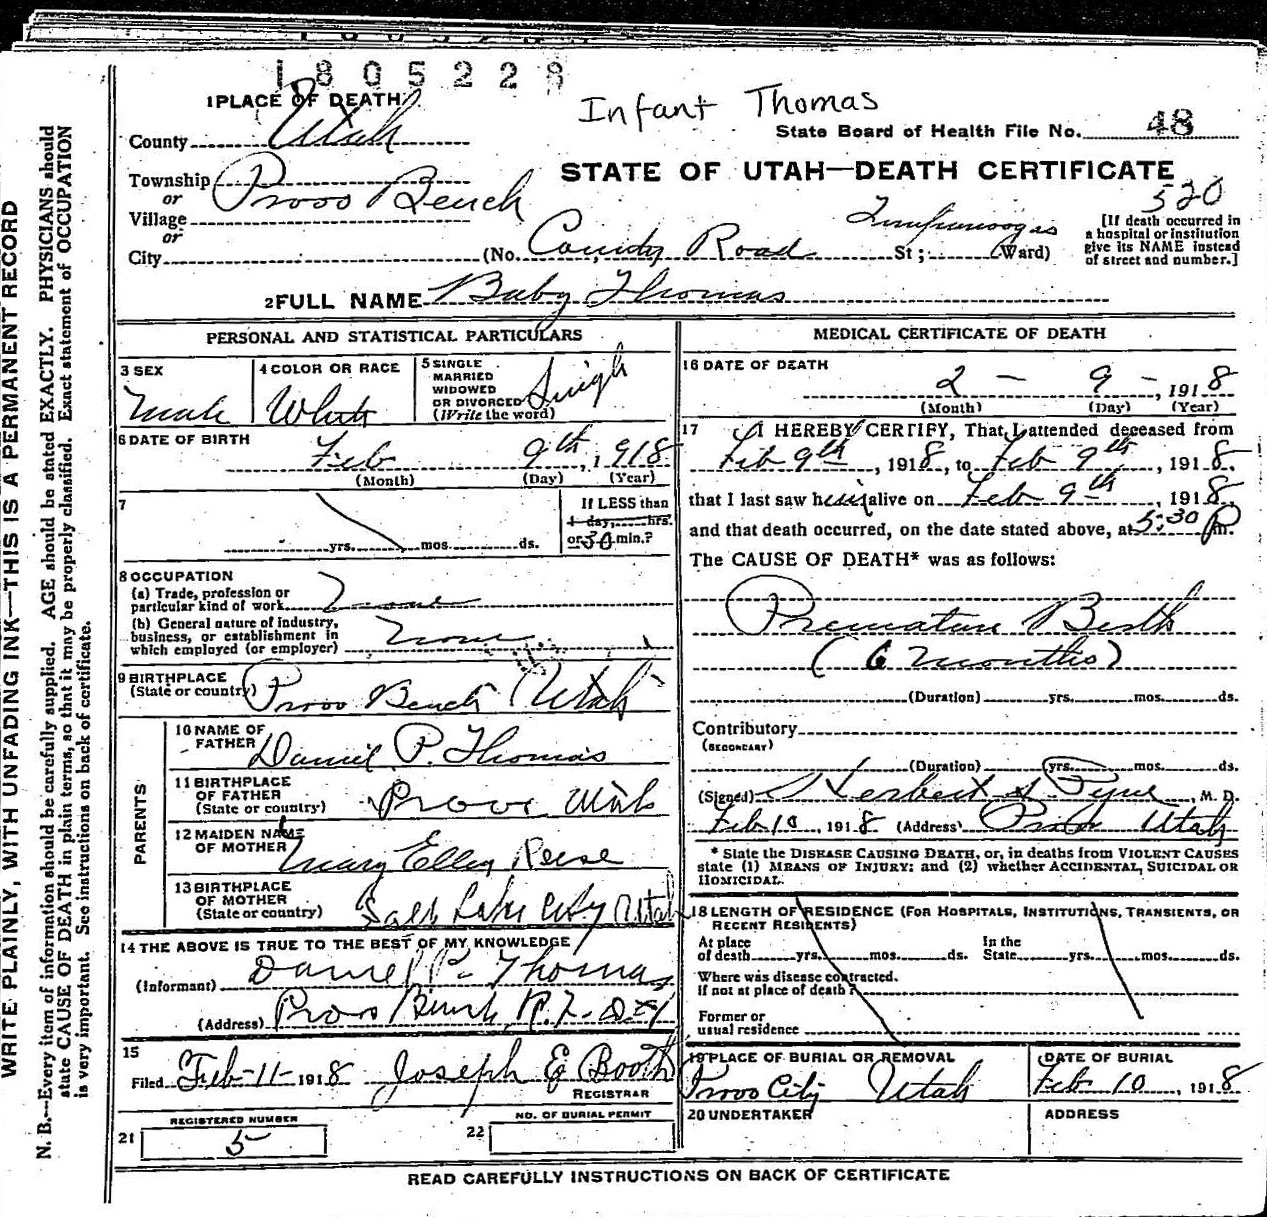 1805228
Infant Thomas
1 PLACE OF DEATH
State Board of Health File No. 48
County Utah
STATE OF UTAH—DEATH CERTIFICATE
Township Provo Bench
or
Village
or
City
520
(No. County Road St; Timpanogas Ward)
[If death occurred in
a hospital or institution
give its NAME instead
of street and number.]
2 FULL NAME Baby Thomas
PERSONAL AND STATISTICAL PARTICULARS
3 SEX
Male
4 COLOR OR RACE
White
5 SINGLE
MARRIED
WIDOWED
OR DIVORCED
(Write the word)
Singl
6 DATE OF BIRTH
Feb 9th, 1918
(Month) (Day) (Year)
7
yrs. mos. ds.
If LESS than
1 day, hrs.
or 30 min.?
8 OCCUPATION
(a) Trade, profession or
particular kind of work None
(b) General nature of industry,
business, or establishment in
which employed (or employer) None
9 BIRTHPLACE
(State or country) Provo Bench Utah
PARENTS
10 NAME OF
FATHER Daniel P. Thomas
11 BIRTHPLACE
OF FATHER
(State or country) Provo Utah
12 MAIDEN NAME
OF MOTHER Mary Ellen Reese
13 BIRTHPLACE
OF MOTHER
(State or country) Salt Lake City Utah
14 THE ABOVE IS TRUE TO THE BEST OF MY KNOWLEDGE
(Informant) Daniel P. Thomas
(Address) Provo Bench R.F.D #1
15
Filed Feb-11-1918 Joseph E Booth
REGISTRAR
REGISTERED NUMBER
21 5
NO. OF BURIAL PERMIT
22
MEDICAL CERTIFICATE OF DEATH
16 DATE OF DEATH
2 — 9 —, 1918
(Month) (Day) (Year)
17 I HEREBY CERTIFY, That I attended deceased from
Feb 9th, 1918, to Feb 9th, 1918.
that I last saw him alive on Feb 9th, 1918
and that death occurred, on the date stated above, at 5:30 P m.
The CAUSE OF DEATH* was as follows:
Premature Birth
(6 months)
(Duration) yrs. mos. ds.
Contributory
(SECONDARY)
(Duration) yrs. mos. ds.
(Signed) Herbert S. Pyne, M. D.
Feb 10, 1918 (Address) Provo Utah
* State the DISEASE CAUSING DEATH, or, in deaths from VIOLENT CAUSES
state (1) MEANS OF INJURY; and (2) whether ACCIDENTAL, SUICIDAL OR
HOMICIDAL.
18 LENGTH OF RESIDENCE (FOR HOSPITALS, INSTITUTIONS, TRANSIENTS, OR
RECENT RESIDENTS)
At place
of death yrs. mos. ds.
In the
State yrs. mos. ds.
Where was disease contracted.
if not at place of death?
Former or
usual residence
19 PLACE OF BURIAL OR REMOVAL
Provo City Utah
DATE OF BURIAL
Feb 10, 1918
20 UNDERTAKER
ADDRESS
READ CAREFULLY INSTRUCTIONS ON BACK OF CERTIFICATE
WRITE PLAINLY, WITH UNFADING INK—THIS IS A PERMANENT RECORD
N. B.—Every item of information should be carefully supplied. AGE should be stated EXACTLY. PHYSICIANS should
state CAUSE OF DEATH in plain terms, so that it may be properly classified. Exact statement of OCCUPATION
is very important. See instructions on back of certificate.